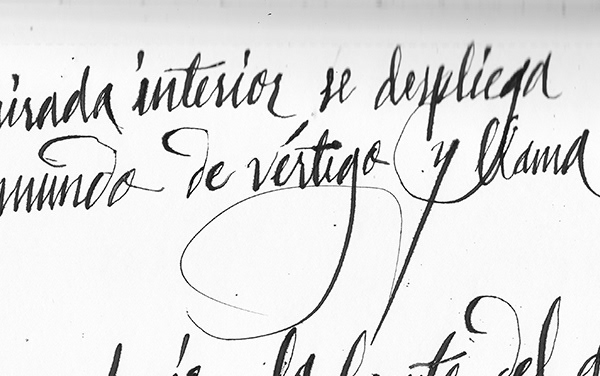 irada interior se despliega
mundo de vértigo y llama
la del